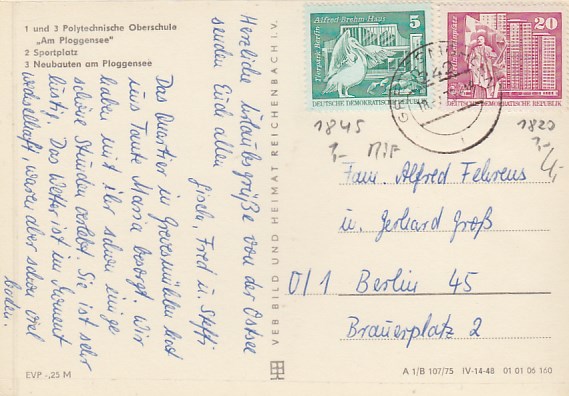 1 und 3 Polytechnische Oberschule
„Am Ploggensee"
2 Sportplatz
3 Neubauten am Ploggensee
Herzliche Urlaubsgrüße von der Ostsee
senden Euch allen
Gisela, Fred u. Steffi
Das Quartier in Grevesmühlen hat
uns Tante Maria besorgt. Wir
haben mit ihr schon einige
schöne Stunden verlebt. Sie ist sehr
lustig. Das Wetter ist im Moment
wechselhaft, waren aber schon viel
baden.
EVP -,25 M
VEB BILD UND HEIMAT REICHENBACH I. V.
Alfred-Brehm-Haus
5
Tierpark Berlin
DEUTSCHE DEMOKRATISCHE REPUBLIK
20
Berlin, Leninplatz
DEUTSCHE DEMOKRATISCHE REPUBLIK
242
1845
1820
MiF
Fam. Alfred Fehrens
u. Gerhard Groß
0/1 Berlin 45
Brauerplatz 2
A 1/B 107/75 IV-14-48 01 01 06 160